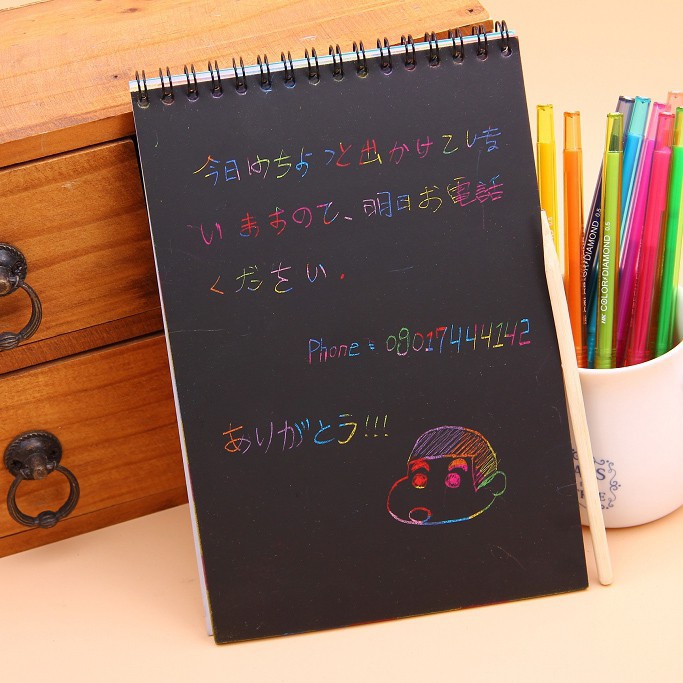 今日はちょっと出かけてしま
いますので、明日お電話
ください.
Phone: 09017444142
ありがとう!!!
COLOR DIAMOND 0.5
COLOR DIAMOND 0.5